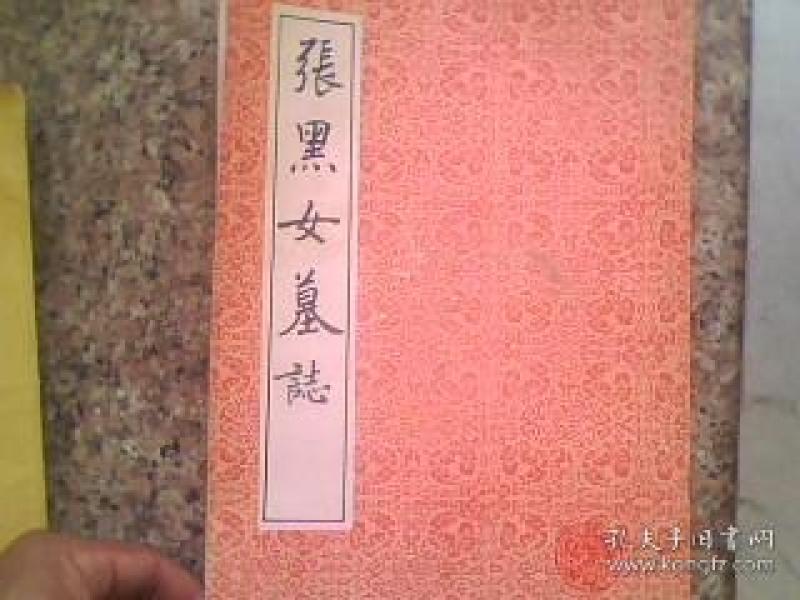 張黑女墓誌
孔夫子旧書网
www.kongfz.com